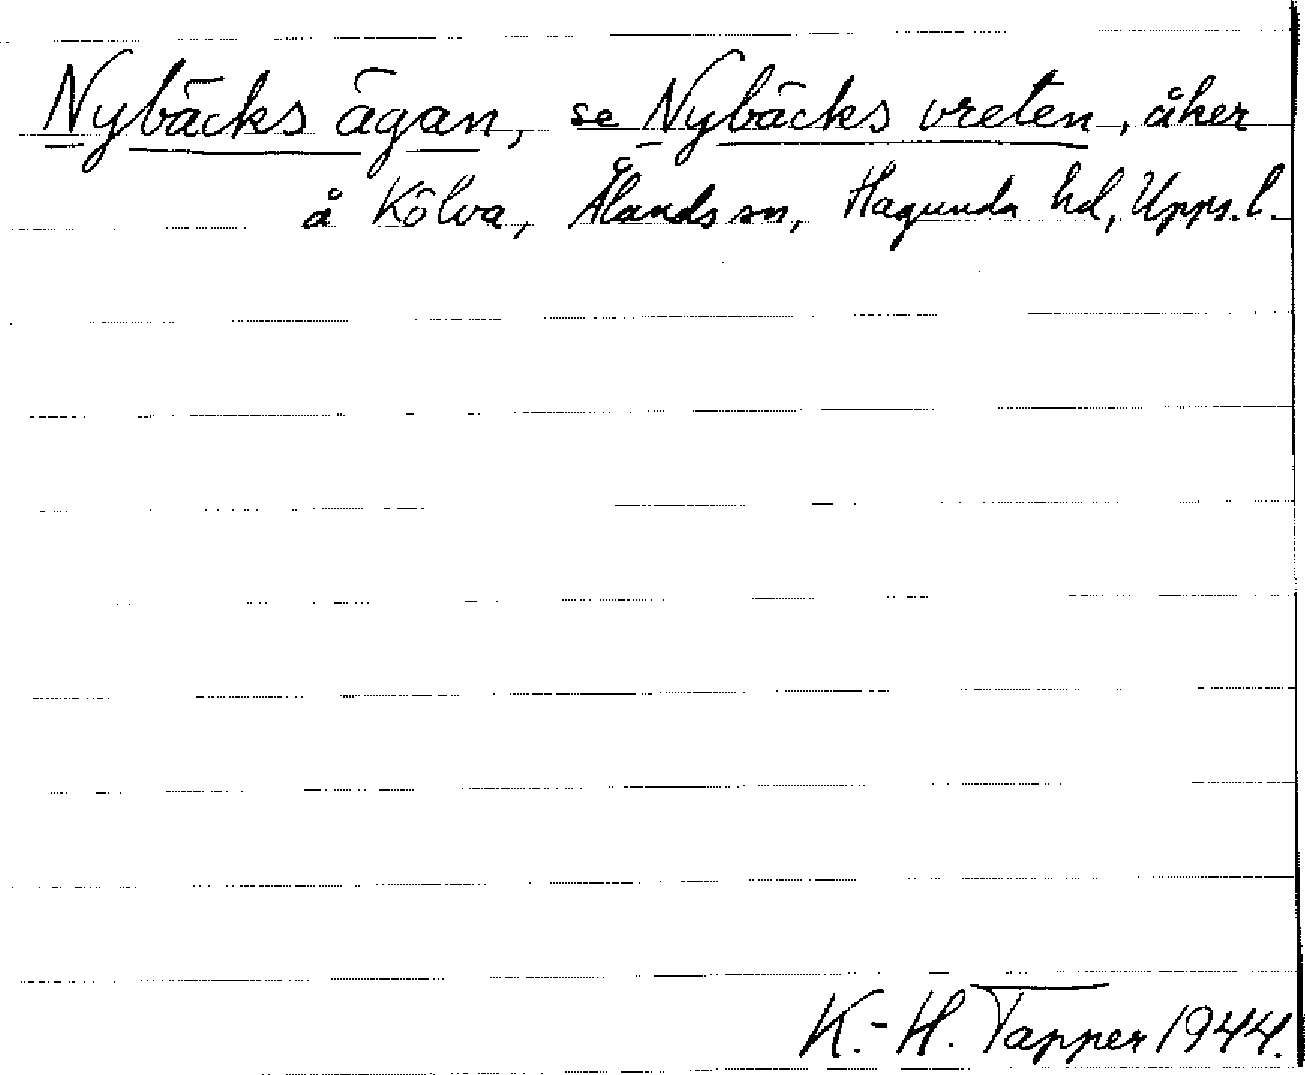 Nybäcks ägan, se Nybäcks vreten, åker
å Kölva, Ålands sn, Hagunda hd, Upps. l.
K.-H. Tapper 1944.